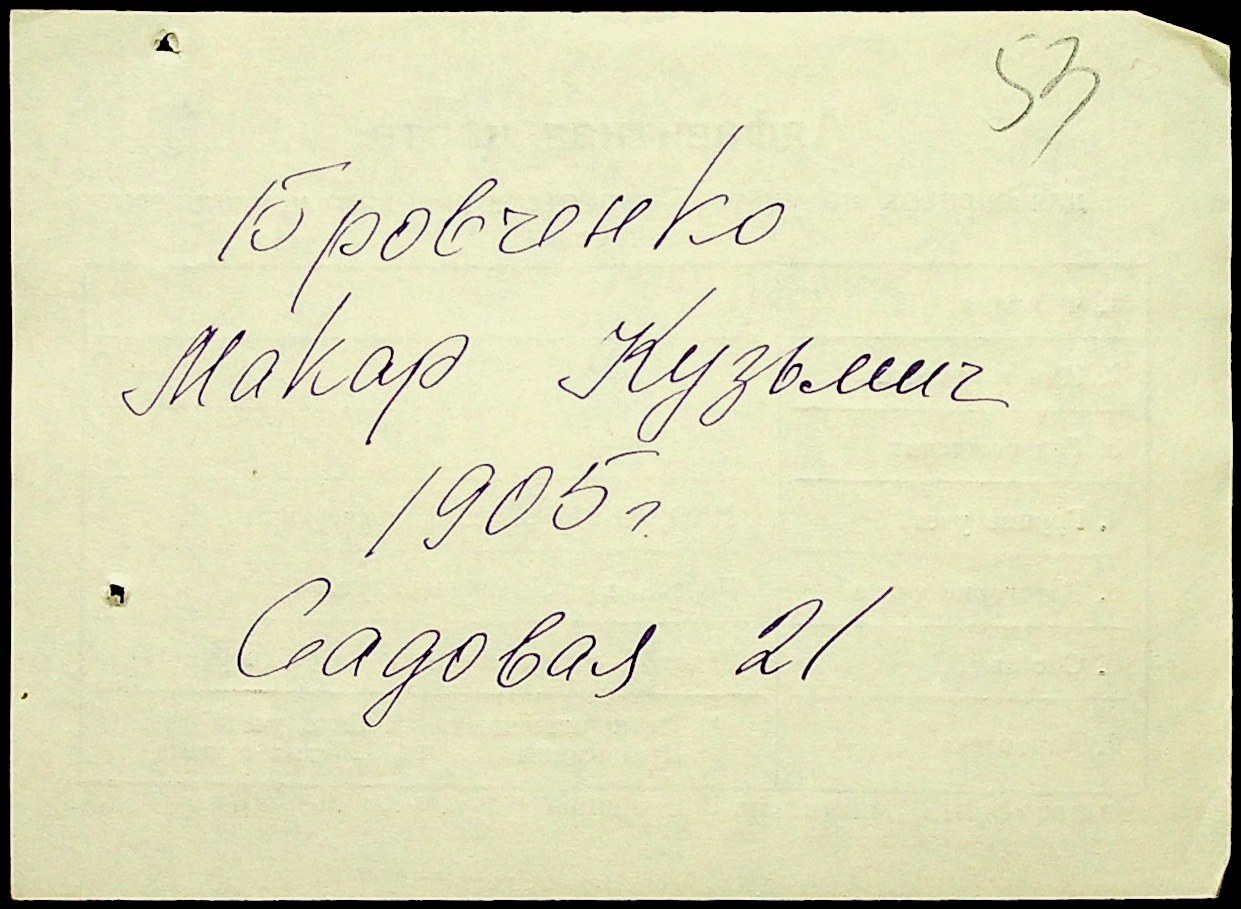 53
Бровченко
Макар Кузьмич
1905 г
Садовая 21